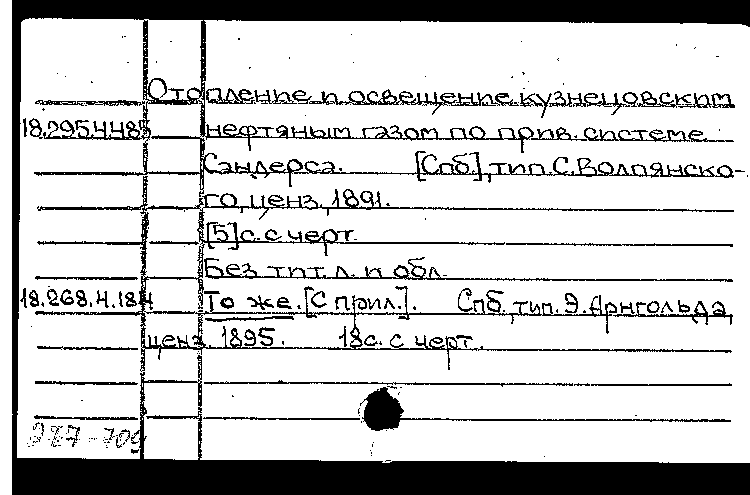 Отопление и освещение кузнецовским
18.295.4.485 нефтяным газом по прив. системе
Сандерса. [Спб], тип. С. Волпянско-
го, ценз. 1891.
[5] с. с черт.
Без тит. л. и обл.
18.268.4.184 То же. [С прил.]. Спб., тип. Э. Арнгольда,
ценз. 1895. 18 с. с черт.
-709